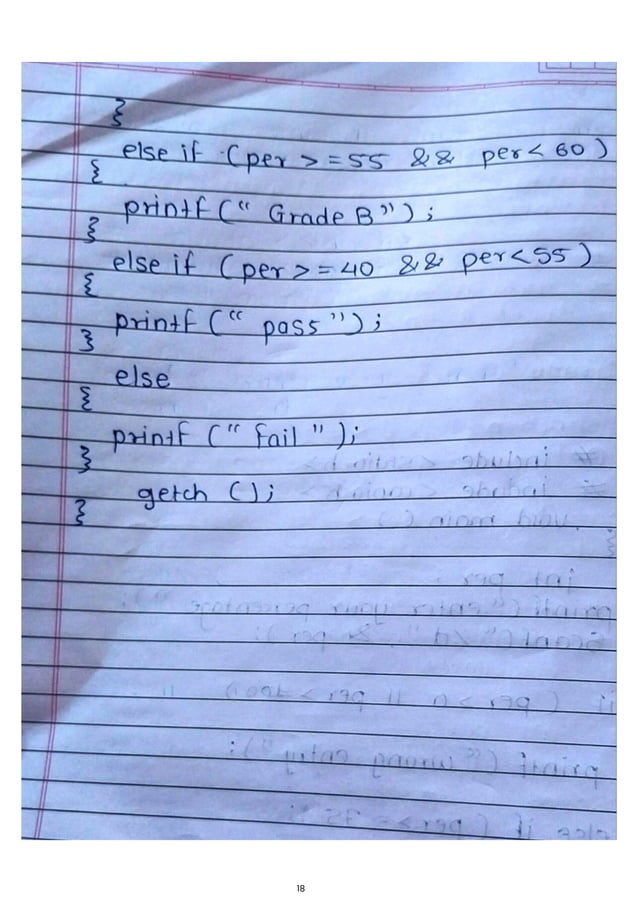 }
else if (per >= 55 && per < 60)
{
printf (" Grade B");
}
else if (per >= 40 && per < 55)
{
printf (" pass");
}
else
{
printf (" fail ");
}
getch ();
}
18